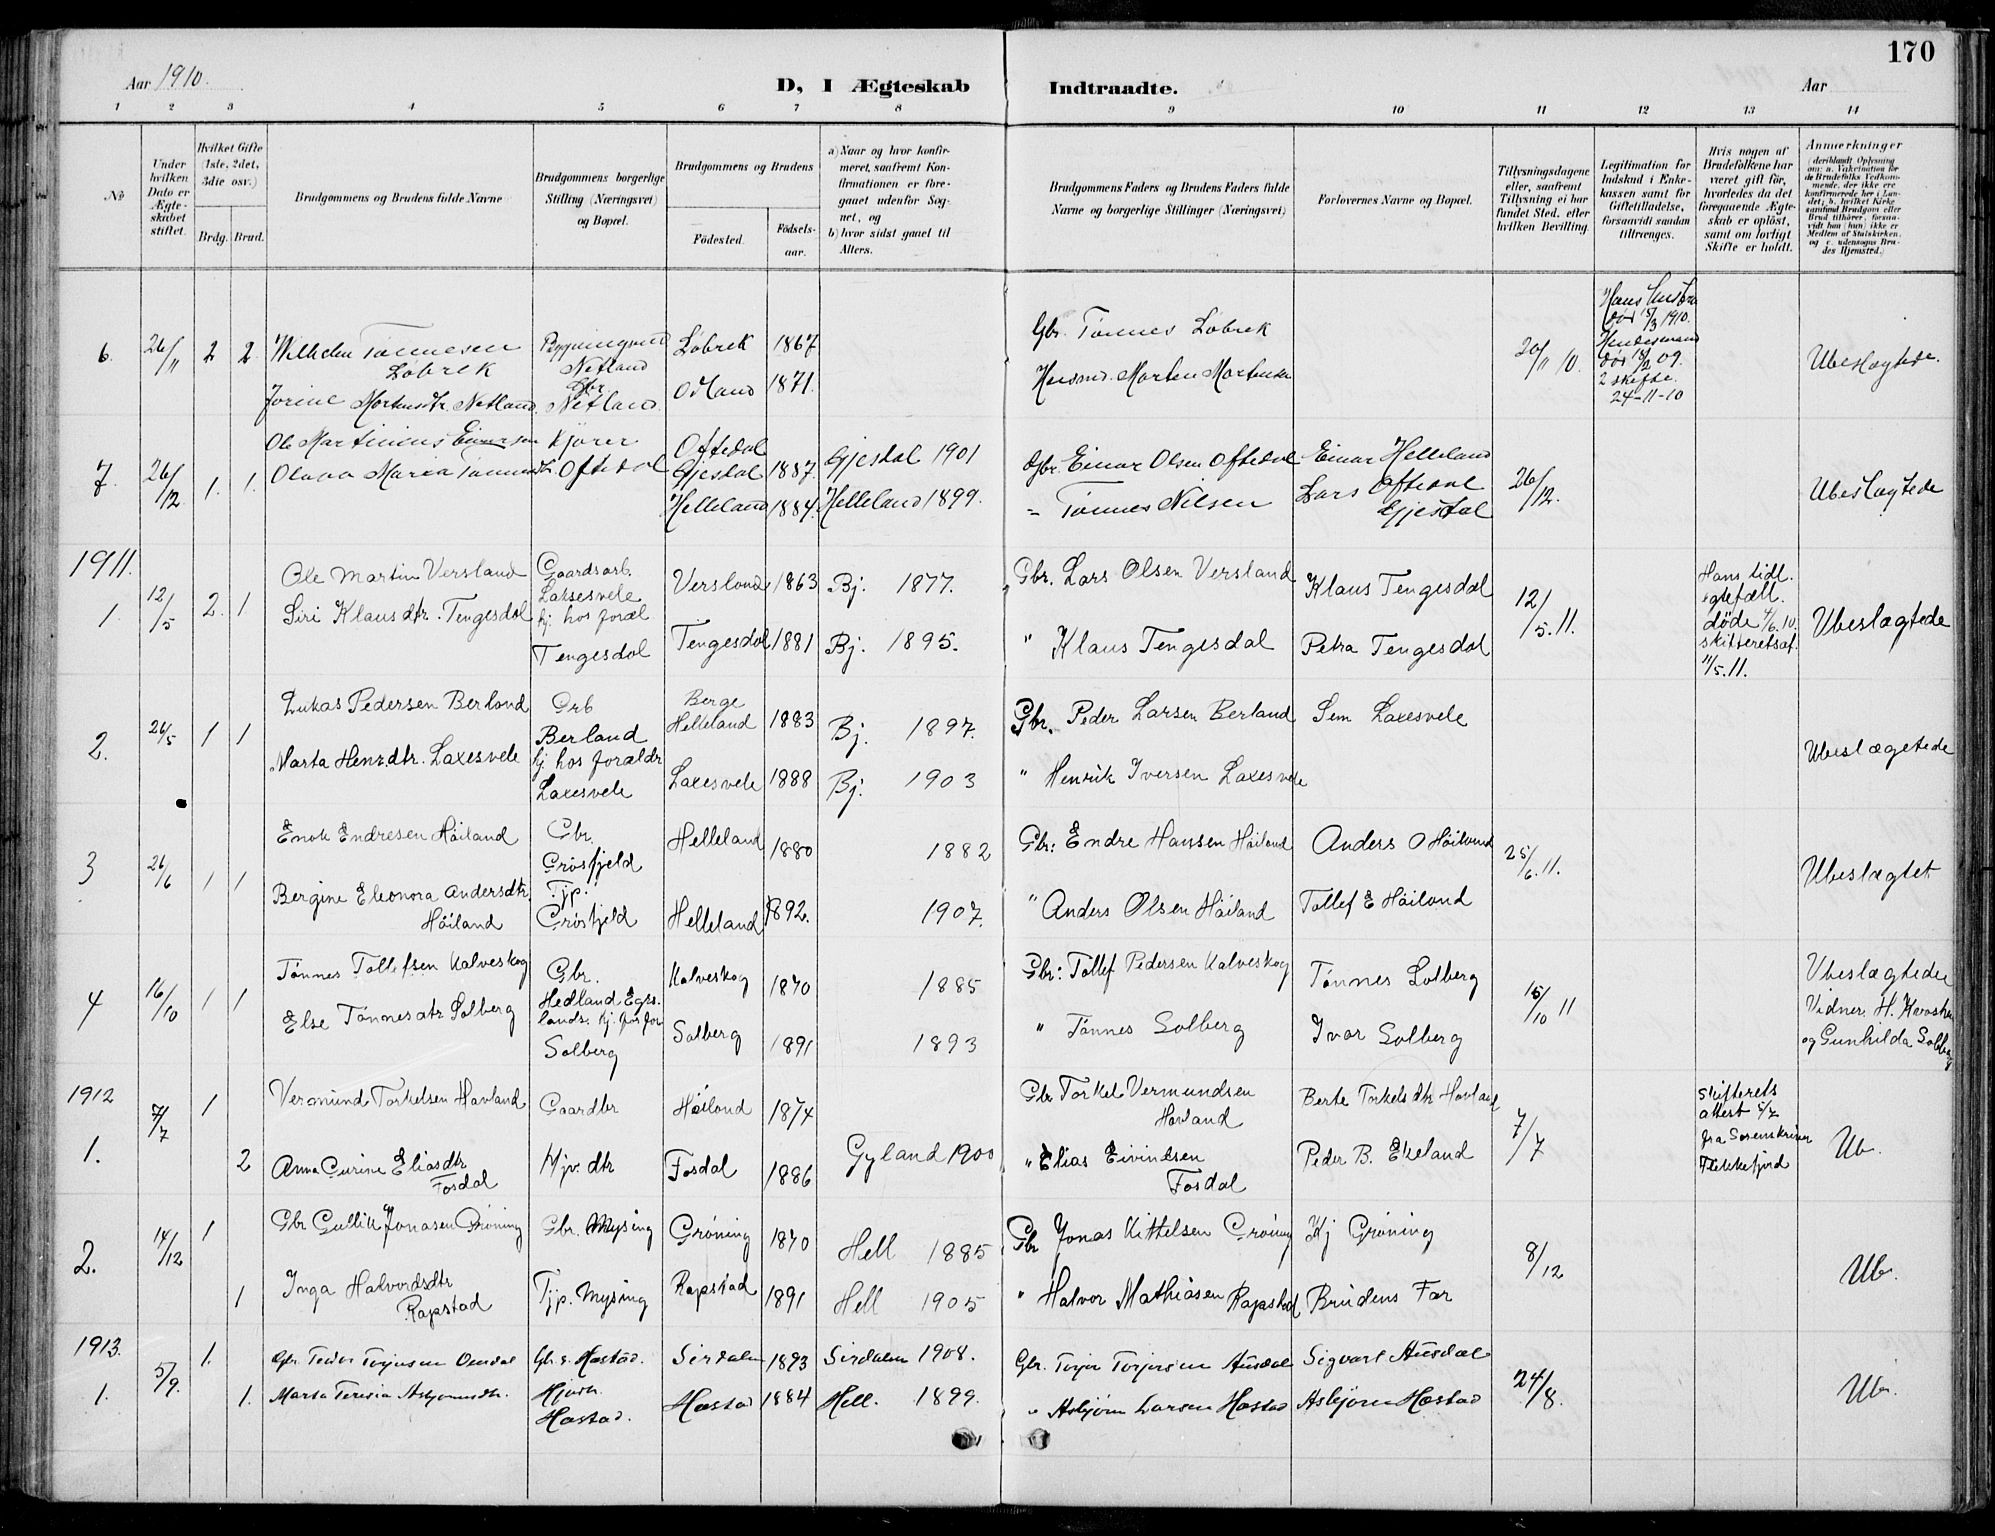 170
Aar 1910.
D, I Ægteskab Indtraadte.
Aar
1 2 3 4 5 6 7 8 9 10 11 12 13 14
No
Under hvilken Dato er Ægteskabet stiftet.
Hvilket Gifte (1ste, 2det, 3die osv.)
Brdg. Brud.
Brudgommens og Brudens fulde Navne
Brudgommens borgerlige Stilling (Næringsvei) og Bopæl.
Brudgommens og Brudens
Fødested.
Fødselsaar.
a) Naar og hvor konfirmeret, saafremt Konfirmationen er foregaaet udenfor Sognet, og
b) hvor sidst gaaet til Alters.
Brudgommens Faders og Brudens Faders fulde Navne og borgerlige Stillinger (Næringsvei)
Forlovernes Navne og Bopæl.
Tillysningsdagene eller, saafremt Tillysning ei har fundet Sted, efter hvilken Bevilling.
Legitimation for Indskud i Enkekassen samt for Giftetilladelse, forsaavidt saadan tiltrænges.
Hvis nogen af Brudefolkene har været gift før, hvorledes da det foregaaende Ægteskab er opløst, samt om lovligt Skifte er holdt.
Anmærkninger
(deriblandt Oplysning om: a. Vakcination for de Brudefolks Vedkommende, der ikke ere konfirmerede her i Landet; b. hvilket Kirkesamfund Brudgom eller Brud tilhører, forsaavidt han (hun) ikke er Medlem af Statskirken, og c. udensogns Brudes Hjemsted.)
6. 26/11 2 2.
Wilhelm Tønnesen Løbrek
Jorine Mortensdtr. Netland.
Netland
Gbr Netland.
Løbrek 1867
Odland 1871.
Gbr. Tønnes Løbrek
Husmd. Morten Mortensen
20/11 10.
Hans hustru død 15/3 1910.
Hendes mand død 18/2 09.
2 skifte. 24-11-10
Ubeslægtede.
7. 26/12 1. 1.
Ole Martinius Einersen
Olava Maria Tønnesdtr.
Kjører
Oftedal
Oftedal Gjesdal 1887.
Helleland 1884.
Gjesdal 1901
Helleland 1899.
Gbr. Einar Olsen Oftedal
" Tønnes Nilsen
Einar Helleland
Lars Oftedal Gjesdal
26/12.
Ubeslægtede
1911.
1. 12/5 2. 1
Ole Martin Versland
Siri Klausdtr. Tengesdal
Gaardsarb. Laxesvele
hj. hos foræl Tengesdal
Versland 1863
Tengesdal 1881
Bj. 1877.
Bj. 1895.
Gbr. Lars Olsen Versland
" Klaus Tengesdal
Klaus Tengesdal
Petra Tengesdal
12/5.11.
Hans tidl. egtefæll. døde 4/6.10. skifteretsat. 11/5.11.
Ubeslægtede
2. 26/5 1 1
Lukas Pedersen Berland
Marta Henr.dtr. Laxesvele
Grb Berland
hj hos forældr Laxesvele
Berge Helleland 1883
Laxesvele 1888
Bj. 1897.
Bj. 1903
Gbr. Peder Larsen Berland
" Henrik Iversen Laxesvele
Sem Laxesvele
Ubeslægetede
3 26/6 1 1
Enok Endresen Høiland
Bergine Eleonora Andersdtr Høiland
Gbr. Grøsfjeld
Tjp. Grøsfjeld
Helleland 1880
Helleland 1892.
1882
1907.
Gbr: Endre Hansen Høiland
" Anders Olsen Høiland
Anders O Høiland
Tollef E Høiland
25/6.11.
Ubeslægtet
4 16/10 1 1
Tønnes Tollefsen Kalveskog
Else Tønnesdtr Solberg
Gbr. Hedland Egrs.
lands. hj. hos for Solberg
Kalveskog 1870
Solberg 1891
1885
1893
Gbr: Tollef Pedersen Kalveskog
" Tønnes Solberg
Tønnes Solberg
Ivar Solberg
15/10 11
Ubeslægtede
Vidner. H.
og Gunhilda Solberg
1912
1. 7/7 1 2
Vermund Torkelsen Hovland
Anna Gurine Eliasdtr Fosdal
Gaardbr
Hjv. dtr
Høiland 1874
Fosdal 1886
Gyland 1900
Gbr Torkel Vermundsen Hovland
" Elias Eivindsen Fosdal
Berte Torkelsdtr Hovland
Peder B. Ekeland
7/7
Skifterets attest 5/7 fra Sorenskriver Flekkefjord
Ub.
2. 14/12 1 1
Gbr Gullik Jonasen Grøning
Inga Halvordsdtr Rapstad
Gbr. Mysing
Tjp. Mysing
Grøning 1870
Rapstad 1891
Hell 1885
Hell 1905
Gbr Jonas Kittelsen Grøning
" Halvor Mathiasen Rapstad
Kj Grøning
Brudens Far
8/12
Ub.
1913.
1. 5/9. 1. 1.
Gbr Teodor Torjusen Ousdal
Marta Teresia Asbjørnsdtr.
Gb. s. Hæstad.
Hjvdtr. Hæstad.
Sirdalen 1893
Hæstad 1884
Sirdalen 1908.
Hell. 1899.
Gbr. Torjer Torjersen Ausdal
" Asbjørn Larsen Hæstad
Sigvart Ausdal
Asbjørn Hæstad
24/8.
Ub.